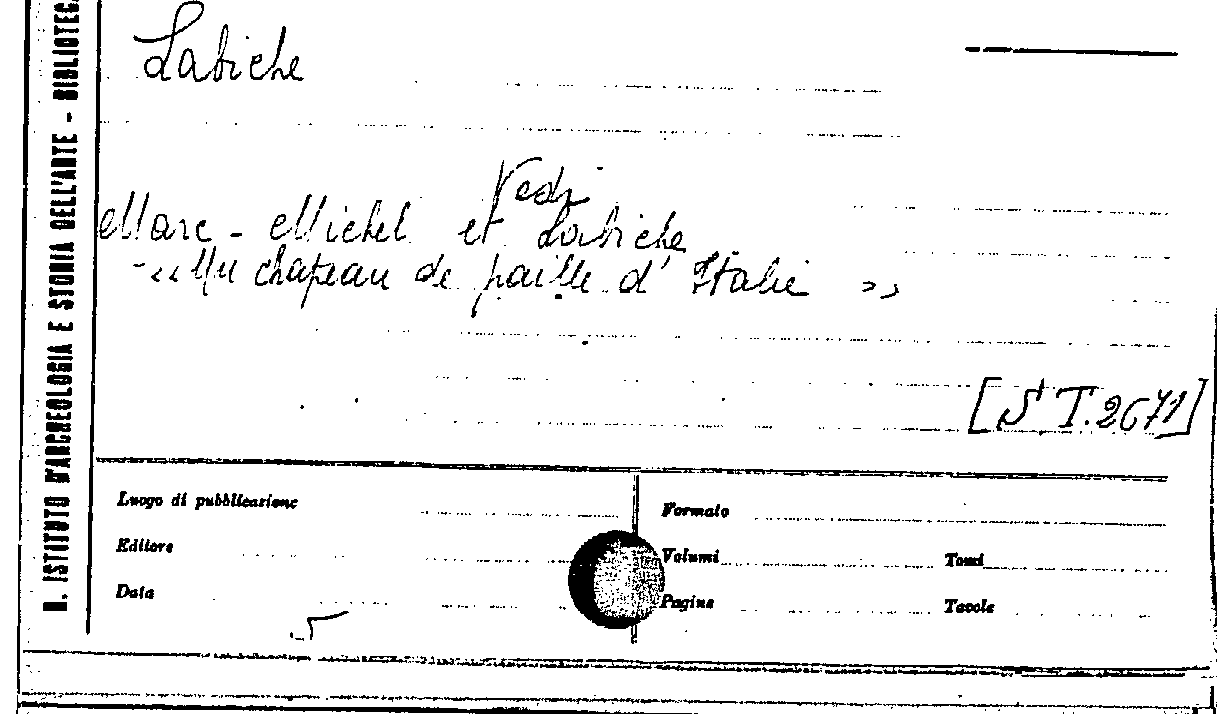 R. ISTITUTO D'ARCHEOLOGIA E STORIA DELL'ARTE - BIBLIOTECA
Labiche
Vedi
Marc - Michel et Labiche
- «Un chapeau de paille d'Italie »
[S T. 2671]
Luogo di pubblicazione
Formato
Editore
Volumi
Tomi
Data
Pagine
Tavole